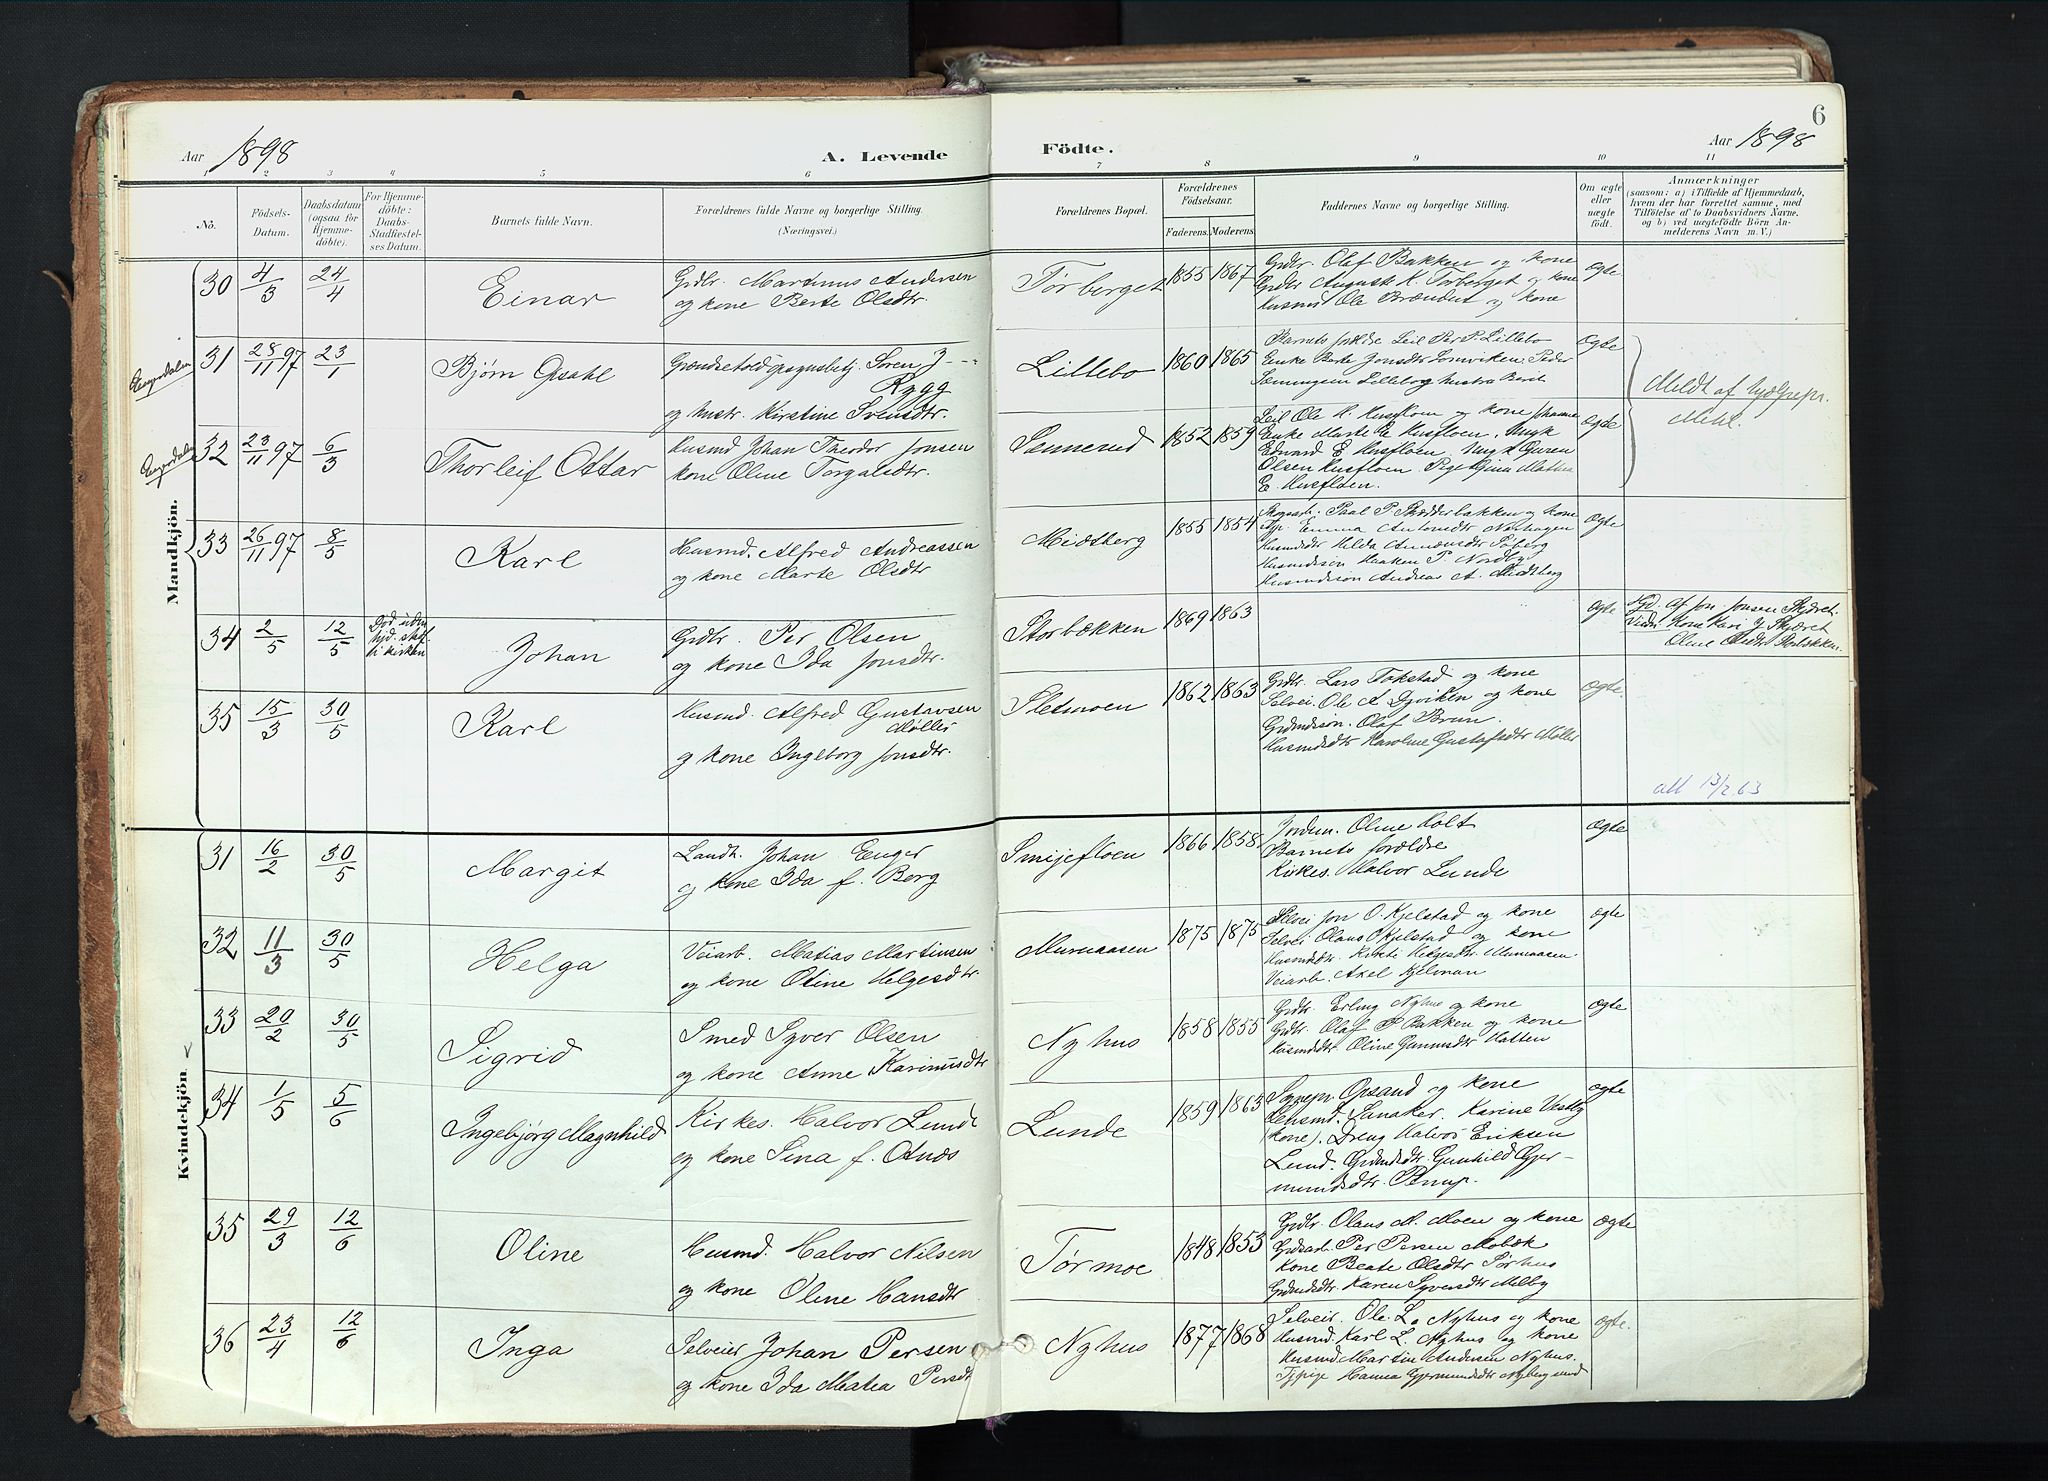 Aar 1898
A. Levende
Födte.
Aar 1898
6
1 2 3 4 5 6 7 8 9 10 11
No.
Födsels-
Datum.
Daabsdatum
(ogsaa for
Hjemme-
döbte).
For Hjemme-
döbte:
Daabs-
Stadfæstel-
ses Datum.
Barnets fulde Navn.
Forældrenes fulde Navne og borgerlige Stilling.
(Næringsvei.)
Forældrenes Bopæl.
Forældrenes
Födselsaar.
Faderens.
Moderens
Faddernes Navne og borgerlige Stilling.
Om ægte
eller
uægte
födt.
Anmærkninger
(saasom: a) i Tilfælde af Hjemmedaab,
hvem der har forrettet samme, med
Tilföielse af to Daabsvidners Navne,
og b) ved uægtefödte Börn An-
melderens Navn m. V.)
Mandkjön.
30 4/3 24/4 Einar
Grdbr. Martinus Andersen
og kone Berte Olsdtr.
Tørberget 1855 1867
Grdbr. Olaf Bakken og kone
Grdbr August K. Torberget og kone
Husmd Ole Brændet og kone
ægte
Engerdalen
31 28/11 97 23/1 Bjørn Opsahl
Søren J
Rygg
og hustr. Kirstine Svensdtr.
Lillebo 1860 1865
Barnets forældre Leil Per P. Lillebo
Enke Berte Jonsdtr Peder
Lillebo hustru Berit
ægte
Meldt af
Engerdalen
32 23/11 97 6/3 Thorleif Ottar
Husmd Johan Theodor Jonsen
kone Oline Torgalsdtr.
Sannerud 1852 1859
Leil Ole H. Husfloen og kone
Enke Marte E Husfloen, Ungk
Edvard E Husfloen, Ungk Guren
Olsen Husfloen. Pige Mathea
E. Husfloen.
ægte
33 26/11 97 8/5 Karl
Husmd. Alfred Andreassen
og kone Marte Olsdtr
Midtberg 1855 1854
Paal P. og kone
Emma
Husmdsdtr Hilda Søberg
Husmdssøn Haaken P. Nordby
Husmdssøn Andreas A. Midtberg
ægte
34 2/5 12/5
Død uden
hjd. staf
i kirken
Johan
Grdbr. Per Olsen
og kone Ida Jonsdtr.
Storbækken 1869 1863
ægte
Hjd. af Jon Jonsen Skjæret.
Vidn. Kone Kari J Skjæret
Oline
35 15/3 30/5 Karl
Husmd. Alfred Gustavsen
Møller
og kone Ingeborg Jonsdtr.
Sletmoen 1862 1863
Grdbr. Lars Tokstad og kone
Selvei. Ole A Dyviken og kone
Grdmdssøn. Olaf Brun.
Husmdsdtr Karoline Gustafsdtr Møller
ægte.
att 13/2 63
Kvindekjön.
31 16/2 30/5 Margit
Landh. Johan Enger
og kone Ida f. Berg
Smijefloen 1866 1858
Jordm. Oline Holt
Barnets forældre
Kirkes. Halvor Lunde
ægte
32 11/3 30/5 Helga
Veiarb. Matias Martinsen
og kone Otine Helgesdtr
Murmaasen 1875 1875
Selvei Jon O. Kjelstad og kone
Selvei Olaus O Kjelstad og kone
Husmdsdtr. Kirsti Helgesdtr. Murmaasen
Veiarb. Axel Hjelman
ægte
33 20/2 30/5 Sigrid
Smed Syver Olsen
og kone Anne Karinusdtr
Nyhus 1858 1855
Grdbr. Erling Nyhus og kone
Grdbr. Olaf P Bakken og kone
Husmdsdtr. Oline Gunusdtr Hatten
ægte
34 1/5 5/6 Ingebjørg Magnhild
Kirkes. Halvor Lunde
og kone Sina f. Otnes
Lunde 1859 1863
Sognepr. Opsand og kone
Lensmd. Sunaker. Karine Vestby
(kone). Dreng Halvor Eriksen
Lund. Grdmdsdtr. Gunhild Gjer-
mundsdtr.
ægte
35 29/3 12/6 Oline
Husmd. Halvor Nilsen
og kone Oline Hansdtr
Tørmoe 1848 1853
Grdbr. Olaus M. Moen og kone
Per Persen Mobæk
Kone Beate Olsdtr Sørhus
Grdmdsdtr. Karen Syversdtr Melby
ægte
36 23/4 12/6 Inga
Selveier Johan Persen
og kone Ida Matea Persdtr
Nyhus 1877 1868
Selveir. Ole L. Nyhus og kone
Husmd. Karl L. Nyhus og kone
Husmd Martin Andersen Nyhus.
Tjpige Hanna Gjermundsdtr
ægte.